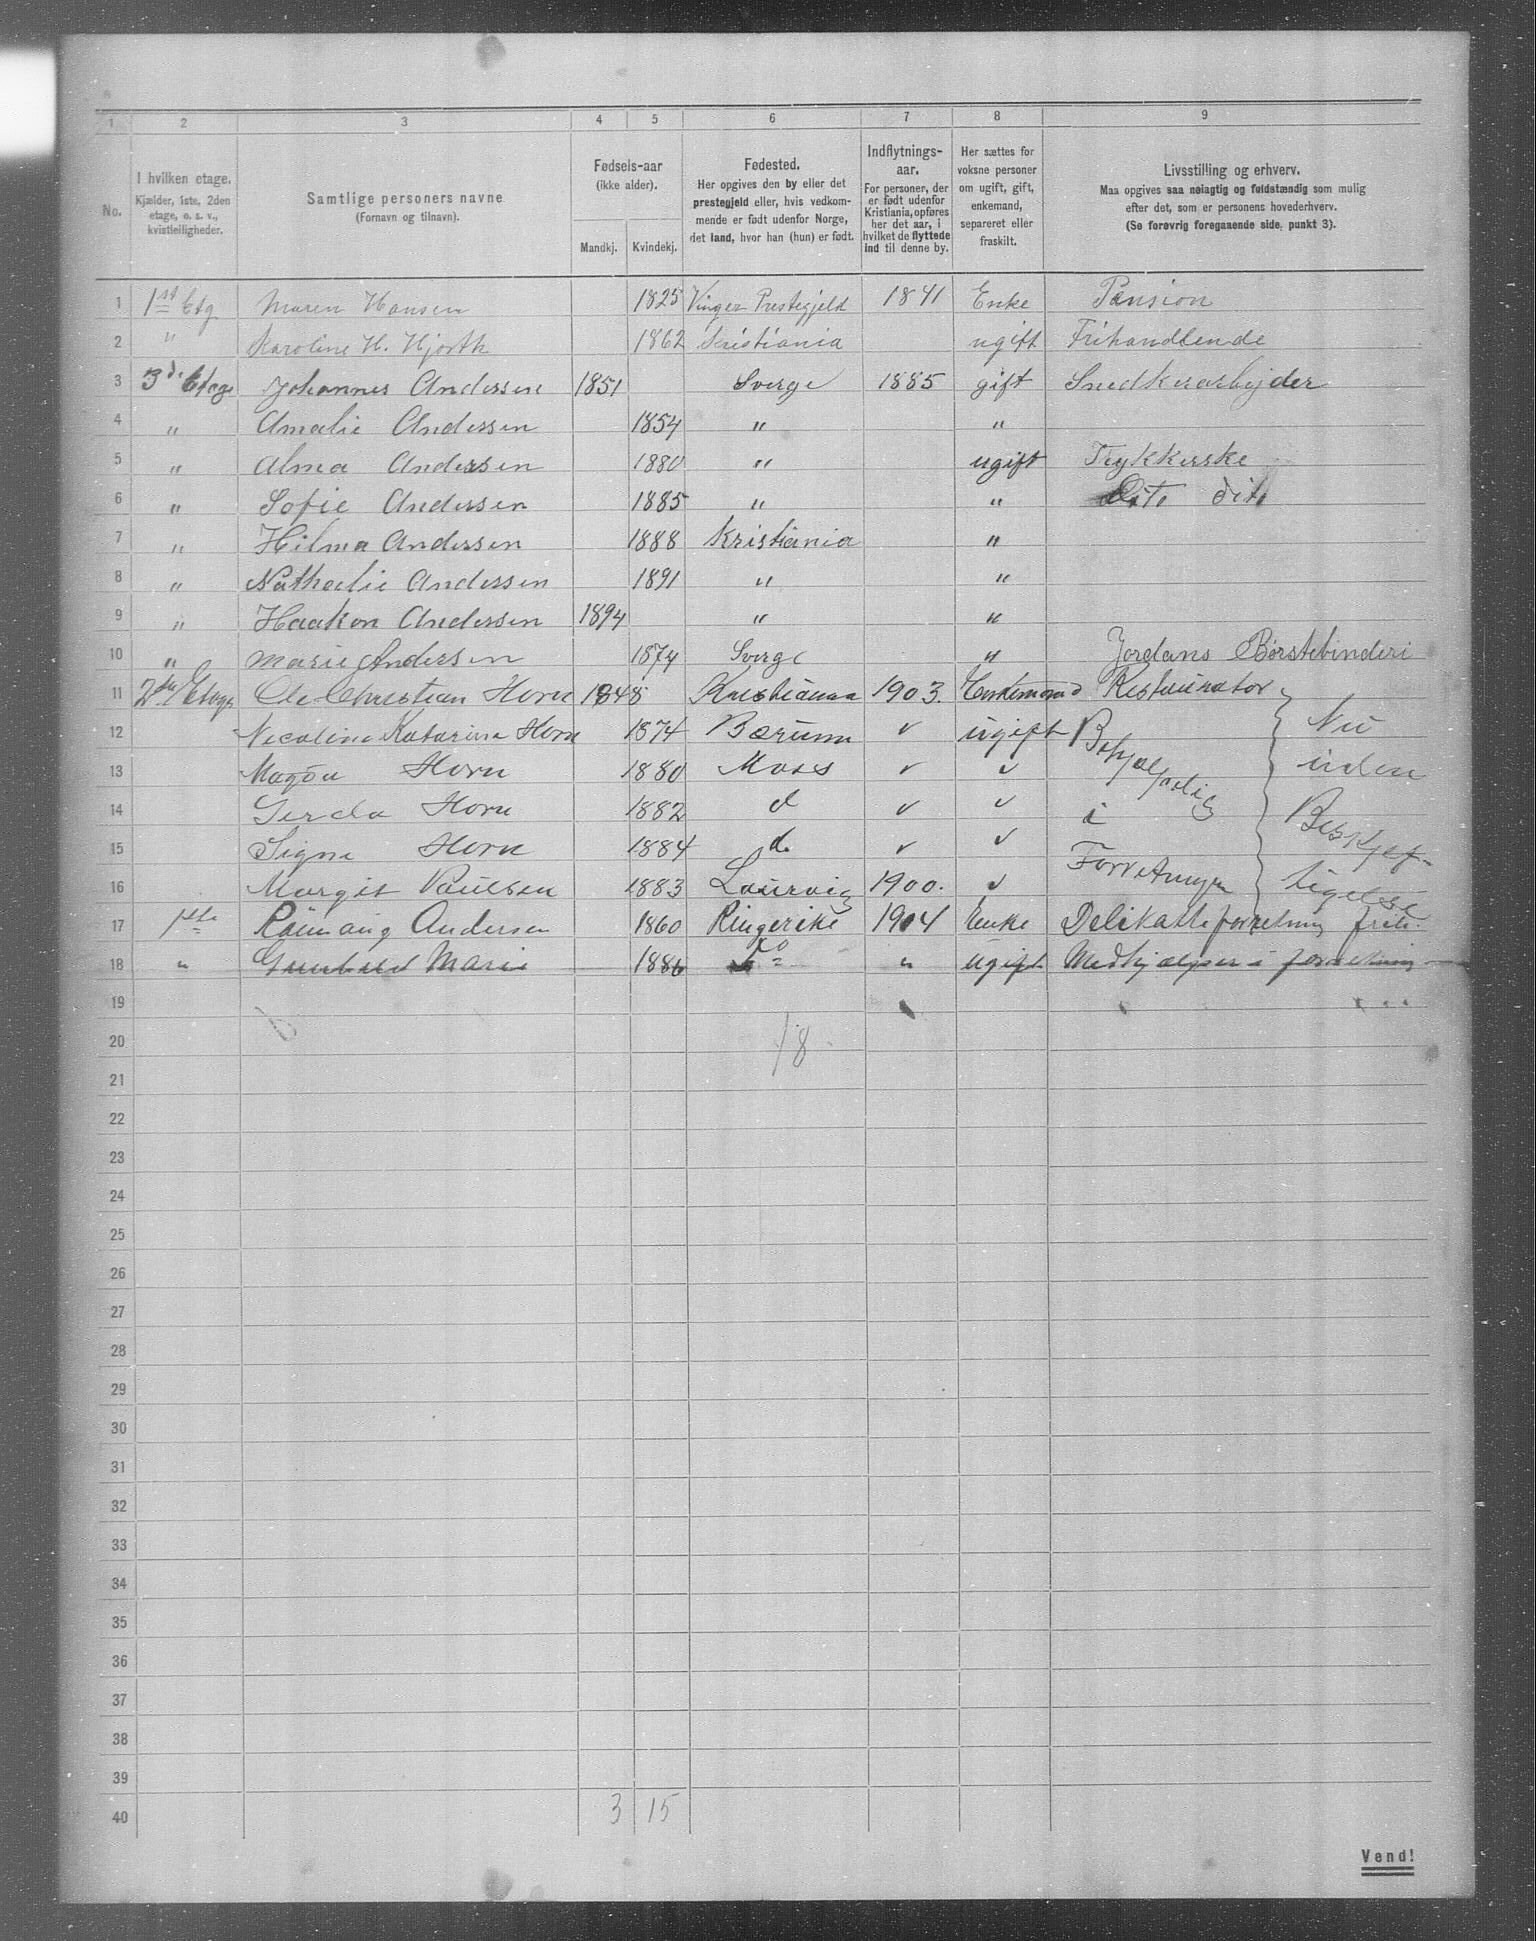 1 2 3 4 5 6 7 8 9
No.
I hvilken etage.
Kjælder, 1ste, 2den
etage, o. s. v.,
kvistleiligheder.
Samtlige personers navne
(Fornavn og tilnavn).
Fødsels-aar
(ikke alder).
Mandkj. Kvindekj.
Fødested.
Her opgives den by eller det
prestegjeld eller, hvis vedkom-
mende er født udenfor Norge,
det land, hvor han (hun) er født.
Indflytnings-
aar.
For personer, der
er født udenfor
Kristiania, opføres
her det aar, i
hvilket de flyttede
ind til denne by.
Her sættes for
voksne personer
om ugift, gift,
enkemand,
separeret eller
fraskilt.
Livsstilling og erhverv.
Maa opgives saa nøiagtig og fuldstændig som mulig
efter det, som er personens hovederhverv.
(Se forøvrig foregaaende side, punkt 3).
1 1st Etg Maren Hansen 1825 Vinger Prestegjeld 1841 Enke Pension
2 " Karoline H. Hjorth 1862 Kristiania ugift Frihandlende
3 3de Etage Johannes Anderssen 1851 Sverge 1885 gift Snedkerarbejder
4 " Amalie Anderssen 1854 " "
5 " Alma Anderssen 1880 " ugift Trykkerske
6 " Sofie Anderssen 1885 " " Dito dito
7 " Hilma Anderssen 1888 Kristiania "
8 " Nathalie Anderssen 1891 " "
9 " Haakon Anderssen 1894 " "
10 " Marie Anderssen 1874 Sverge " Jordans Børstebinderi
11 2den Etage Ole Christian Horn 1848 Kristiania 1903. Enkemand Restauratør
12 Nicoline Katarina Horn 1874 Bærum ✓ ugift Beskjæftig
13 Magda Horn 1880 Moss ✓ ✓
14 Gerda Horn 1882 d ✓ ✓ i
15 Signe Horn 1884 d. ✓ ✓
16 Margit Paulsen 1883 Laurvig 1900. ✓ Forretningen
} Nu
uden
Beskjæf-
tigelse
17 1ste Andersen 1860 Ringerike 1904 Enke Delikatteforretning
18 " Gunhild Marie 1886 do " ugift Medhjælper i forretning
19
20 18
21
22
23
24
25
26
27
28
29
30
31
32
33
34
35
36
37
38
39
40 3 15
Vend!